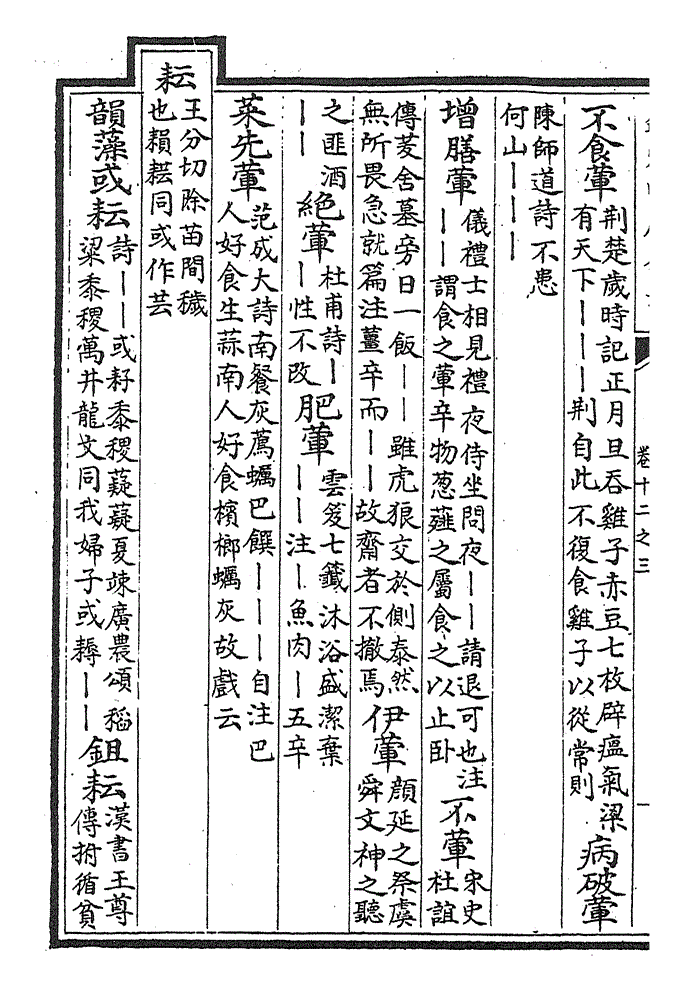 不食葷
荆楚歲時記正月旦吞雞子赤豆七枚辟瘟氣梁
有天下｜｜｜荆自此不復食雞子以從常則
病破葷
陳師道詩不患
何山｜｜｜
增膳葷
儀禮士相見禮夜侍坐問夜｜｜請退可也注
｜｜謂食之葷辛物葱薤之屬食之以止卧
不葷
宋史
杜誼
傳茇舍墓旁日一飯｜｜雖虎狼交於側泰然
無所畏急就篇注薑辛而｜｜故齋者不撤焉
伊葷
顏延之祭虞
舜文神之聽
之匪酒
｜｜
絶葷
杜甫詩｜
｜性不改
肥葷
雲笈七籤沐浴盛潔棄
｜｜注｜魚肉｜五辛
菜先葷
范成大詩南餐灰薦蠣巴饌｜｜｜自注巴
人好食生蒜南人好食檳榔蠣灰故戲云
耘
王分切除苗間穢
也䅲耘同或作芸
韻藻或耘
詩｜｜或耔黍稷薿薿夏竦廣農頌稻
粱黍稷萬井龍文同我婦子或耨｜｜
鉏耘
漢書王尊
傳拊循貧
卷十二之三